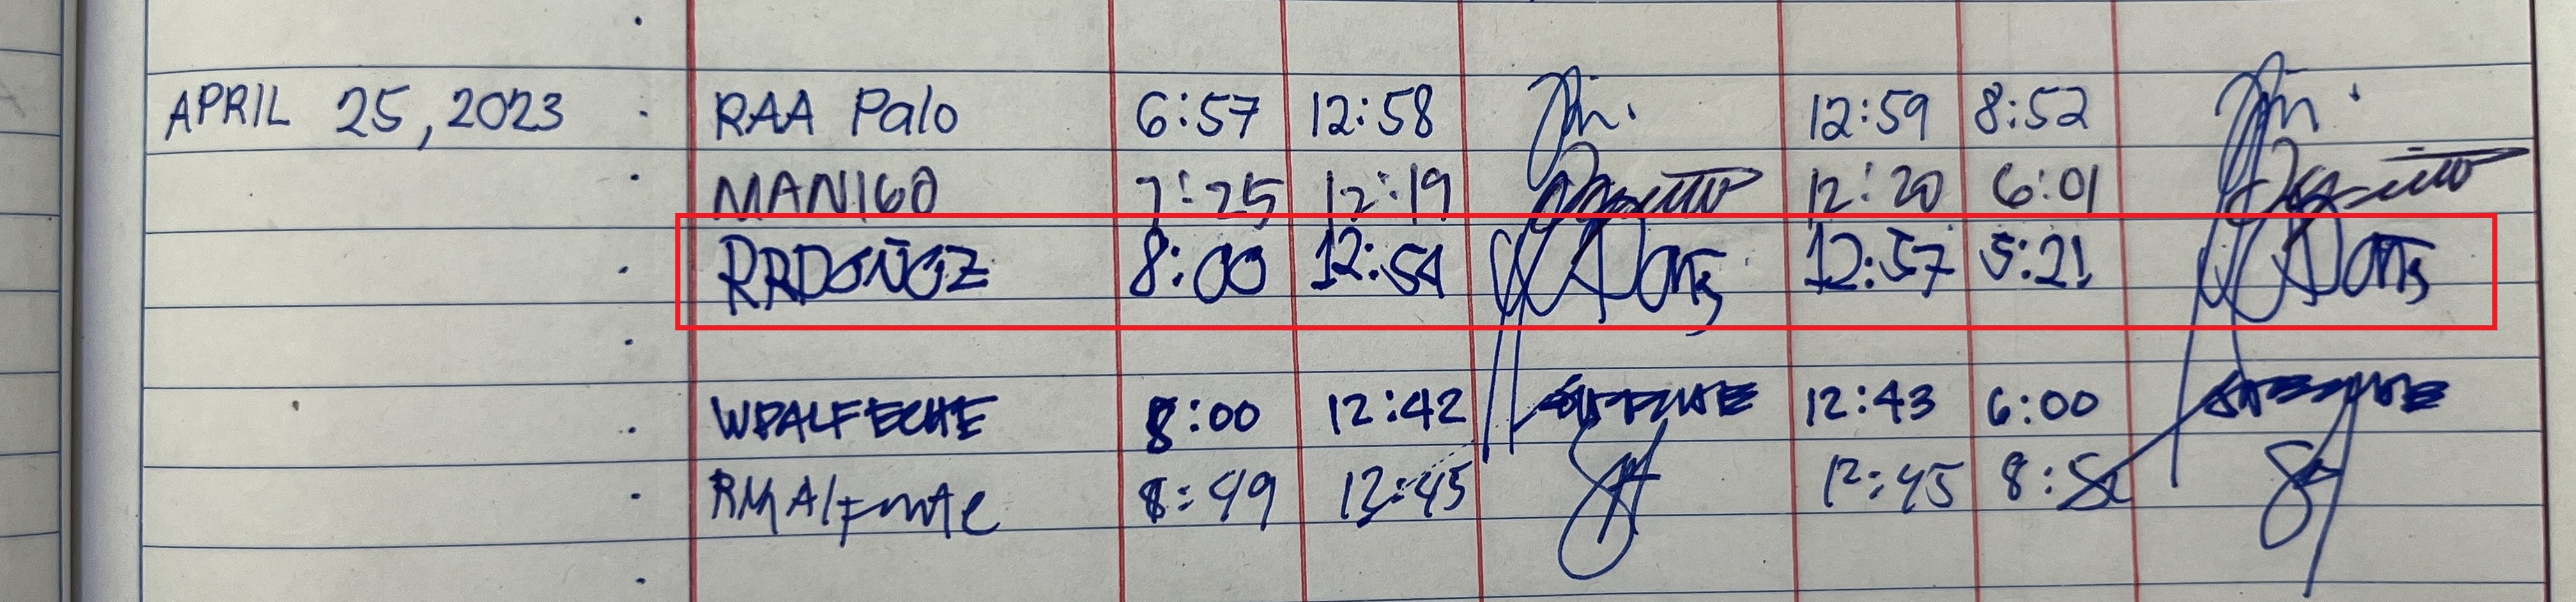 APRIL 25, 2023 . RAA Palo 6:57 12:58 12:59 8:52
MANIGO 7:25 12:19 12:20 6:01
RRDOÑOZ 8:00 12:54 12:57 5:21
WPALFECHE 8:00 12:42 12:43 6:00
8:49 12:45 12:45